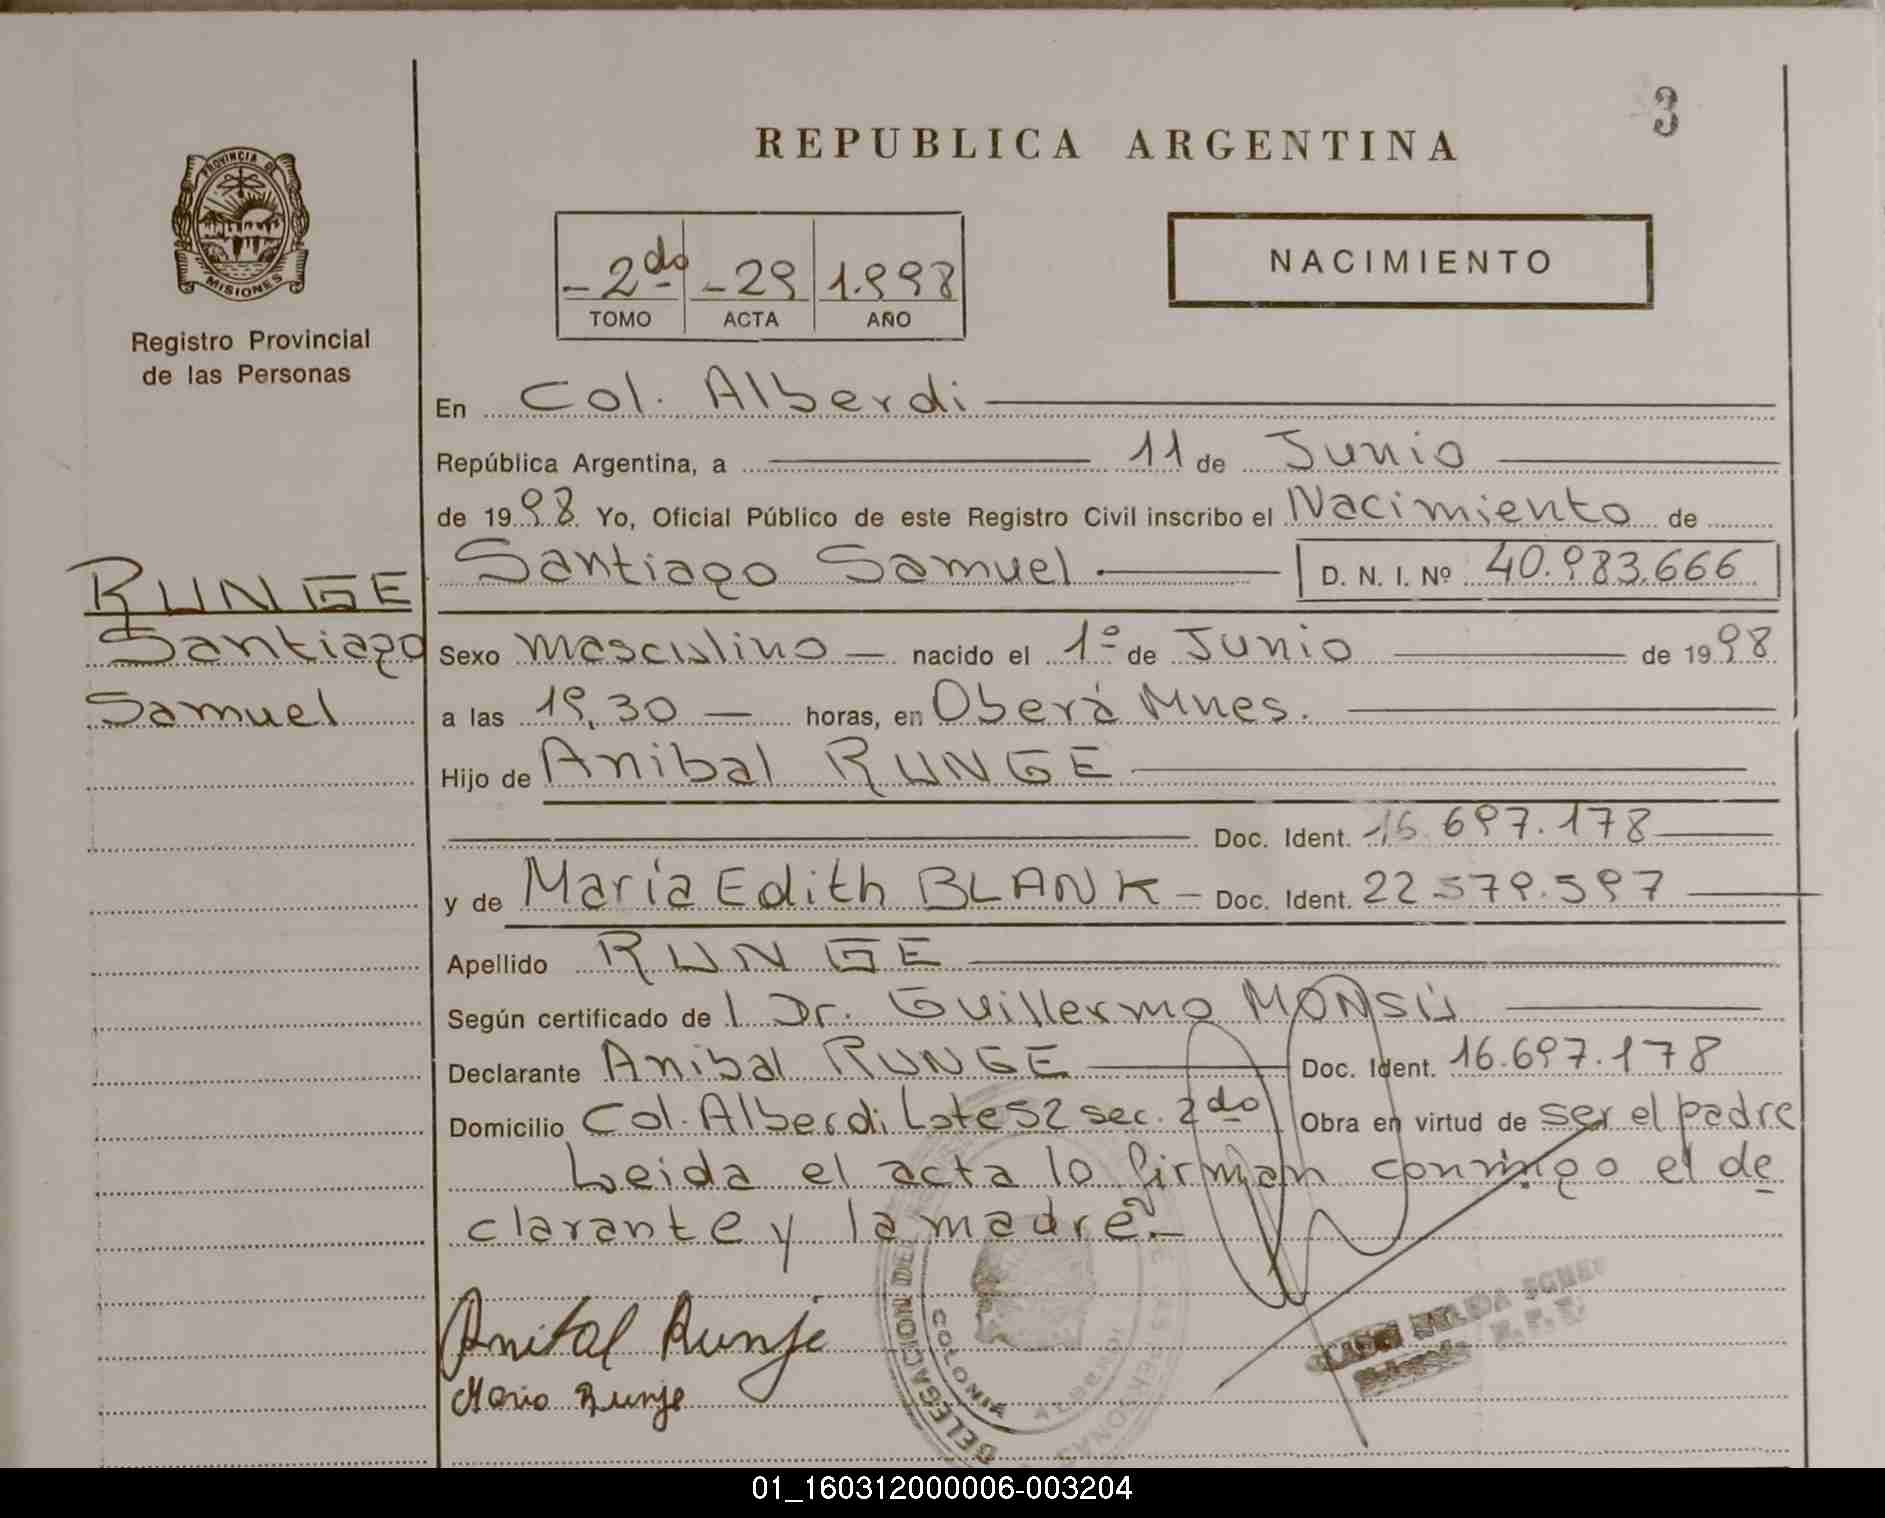 3
REPUBLICA ARGENTINA
PROVINCIA DE
MISIONES
Registro Provincial
de las Personas
-2do- -29 1.998
TOMO ACTA AÑO
NACIMIENTO
En Col. Alberdi
República Argentina, a 11 de Junio
de 1998. Yo, Oficial Público de este Registro Civil inscribo el Nacimiento de
Santiago Samuel D. N. I. Nº 40.983.666
RUNGE
Santiago
Samuel
Sexo masculino nacido el 1º de Junio de 1998
a las 19,30 horas, en Oberá Mnes.
Hijo de Anibal RUNGE
Doc. Ident. 16.697.178
y de María Edith BLANK Doc. Ident. 22.579.597
Apellido RUNGE
Según certificado del Dr. Guillermo MONSÚ
Declarante Anibal RUNGE Doc. Ident. 16.697.178
Domicilio Col. Alberdi Lote 52 sec. 2do Obra en virtud de ser el padre
Leida el acta lo firman conmigo el de
clarante y la madre.-
Anibal Runje
Mario Runje
DELEGACION DEL
COLONIA ALBERDI
01_160312000006-003204